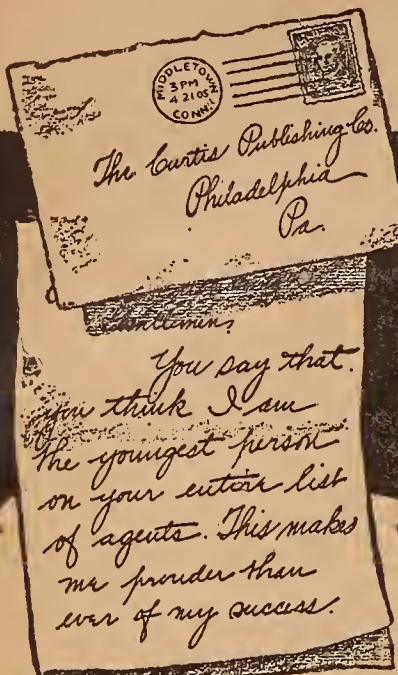 MIDDLETOWN
3 PM
4 21 05
CONN.
The Curtis Publishing Co.
Philadelphia
Pa.
Gentlemen;
You say that
you think I am
the youngest person
on your entire list
of agents. This makes
me prouder than
ever of my success.